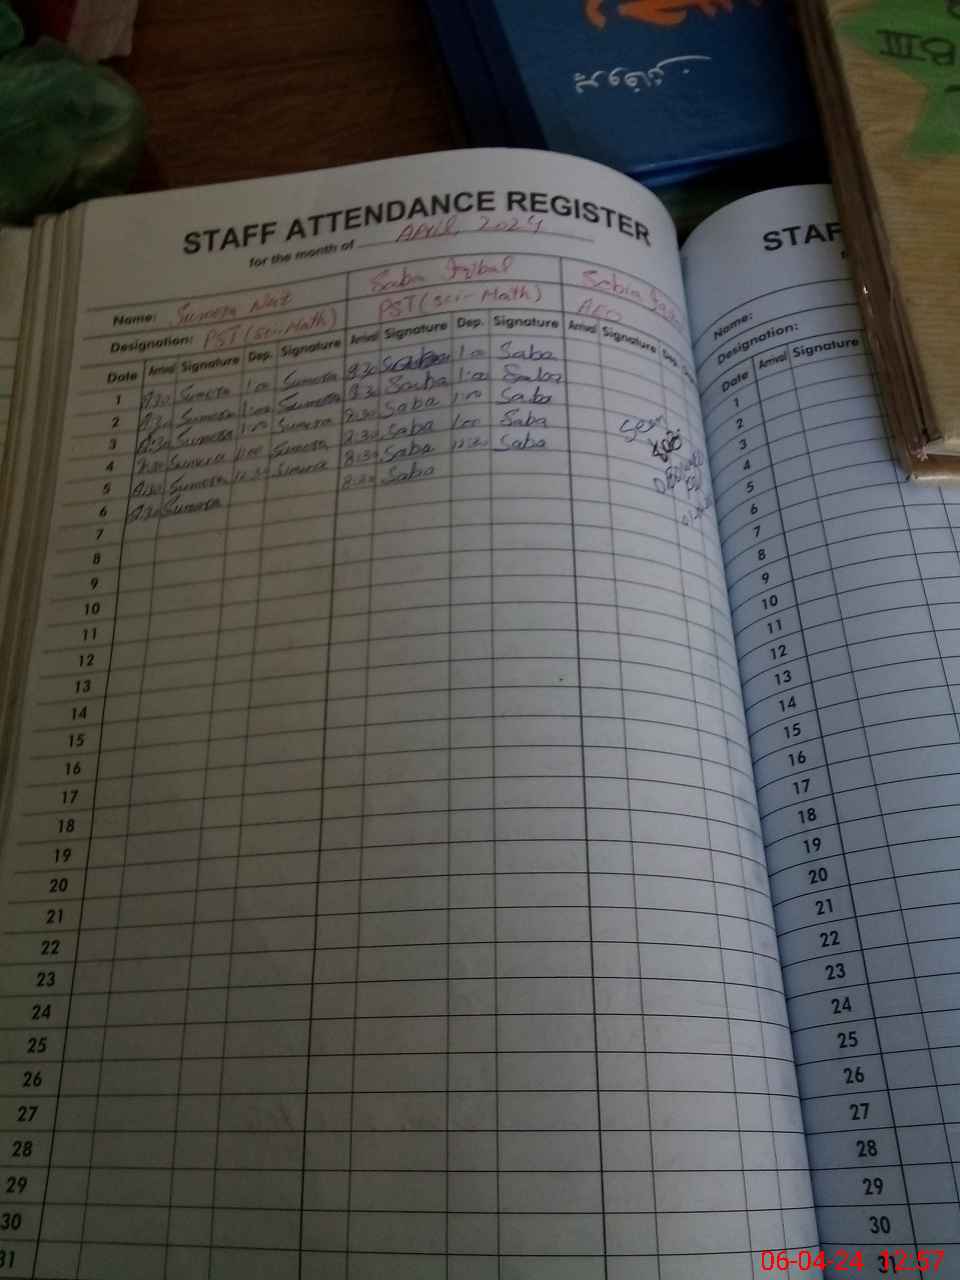 III B
STAFF ATTENDANCE REGISTER
for the month of APril, 2024
Name: Sumera Saba Iqbal
Designation: PST (sci-Math) PST (sci-Math) AEO
Date Arrival Signature Dep. Signature Arrival Signature Dep. Signature Arrival Signature Dep.
1 8:30 Sumera 1:00 Sumera 8:30 Saba 1:00 Saba
2 8:30 Sumera 1:00 Sumera 8:30 Saba 1:00 Saba
3 8:30 Sumera 1:00 Sumera 8:30 Saba 1:00 Saba
4 8:30 Sumera 1:00 Sumera 8:30 Saba 1:00 Saba
5 8:30 Sumera 12:30 Sumera 8:30 Saba 12:30 Saba
6 8:30 Sumera 8:30 Saba
7
8
9
10
11
12
13
14
15
16
17
18
19
20
21
22
23
24
25
26
27
28
29
30
31
STAF
Name:
Designation:
Date Arrival Signature
1
2
3
4
5
6
7
8
9
10
11
12
13
14
15
16
17
18
19
20
21
22
23
24
25
26
27
28
29
30
31
06-04-24 12:57